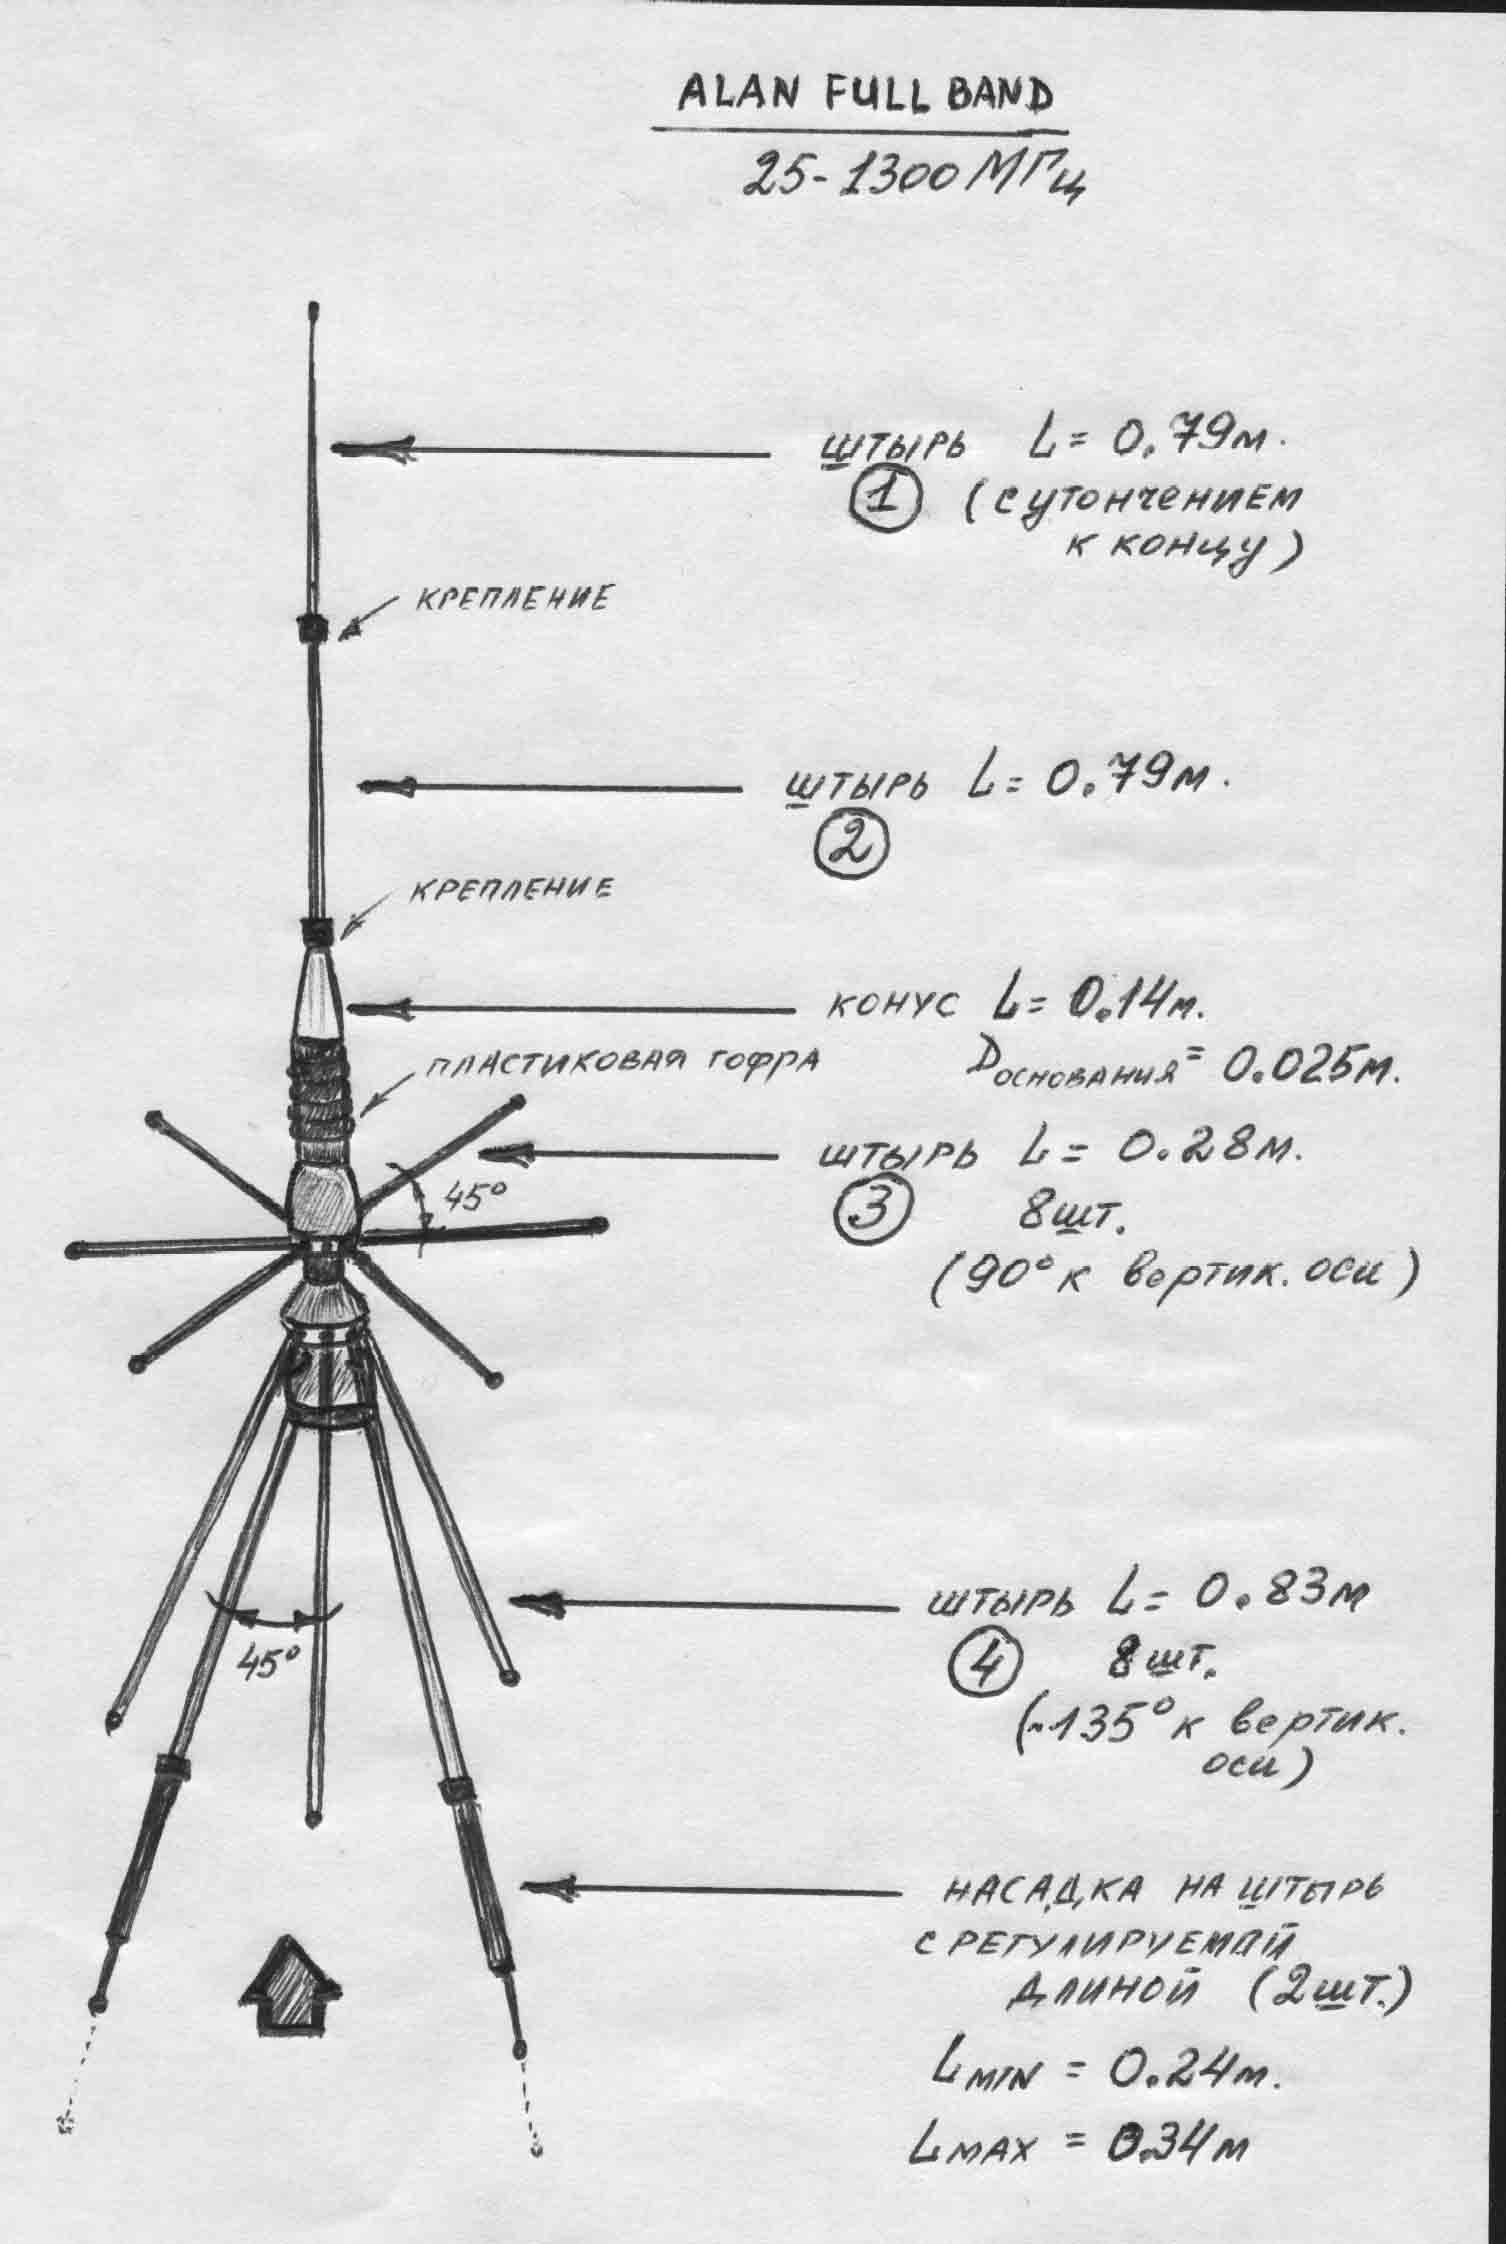 ALAN FULL BAND
25-1300 МГц
штырь L= 0.79м.
1 (с утончением
к концу)
крепление
штырь L= 0.79м.
2
крепление
конус L= 0.14м.
Dоснования= 0.025м.
пластиковая гофра
штырь L= 0.28м.
45°
3 8шт.
(90° к вертик. оси)
штырь L= 0.83м
45°
4 8шт.
(~135° к вертик.
оси)
насадка на штырь
с регулируемой
длиной (2шт.)
LMIN = 0.24м.
LMAX = 0.34м